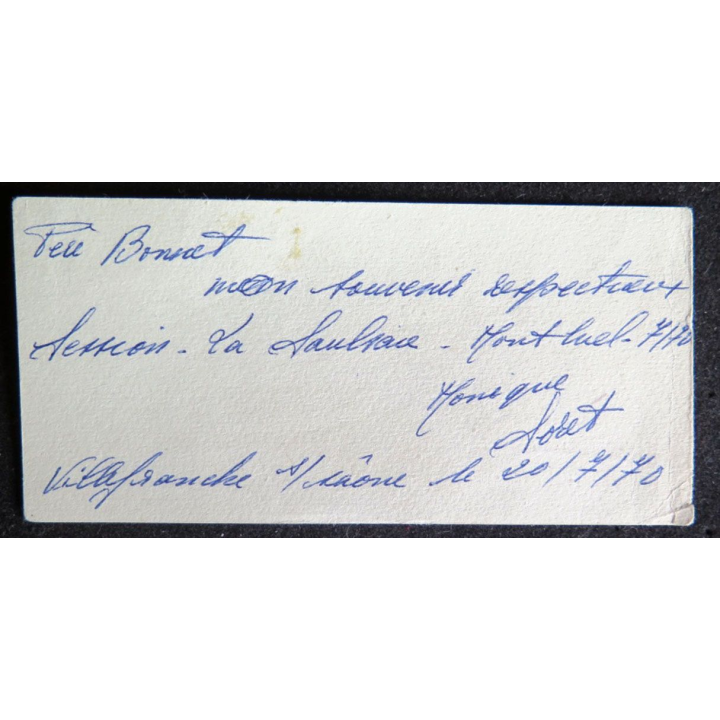 Père Bonnet
mon souvenir respectueux
Session - La Saulsaie - Montluel - 7/70
Monique
Soret
Villefranche s/saône le 20/7/70